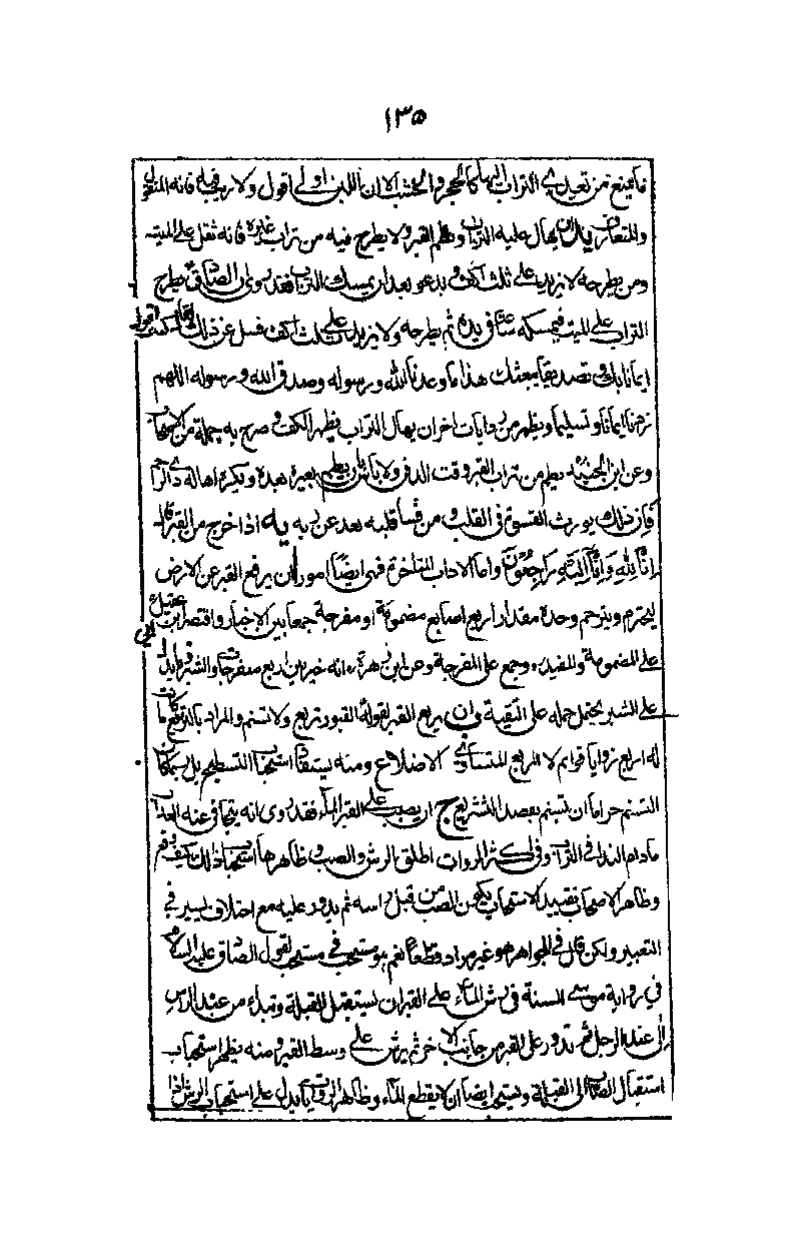 ١٣٥
فما يمنع من تعدي التراب اليها كالحجر والخشب الا ان اللبن اولى اقول ولا ريب فيه فانه المنقول
والمتعارف يد ان يهال عليه التراب ويطم القبر ولا يطرح فيه من تراب غيره فانه ثقل على الميت
ومن يطرحه لا يزيد على ثلث اكف ويدعو بعد ان يمسك التراب فقد روى ان الصادق ع يطرح
التراب على الميت فيمسكه ساعة في يده ثم يطرحه ولا يزيد على ثلث اكف فسئل عن ذلك فقال كنت اقول
ايمانا بك وتصديقا ببعثك هذا ما وعدنا الله ورسوله وصدق الله ورسوله اللهم
زدنا ايمانا وتسليما ويظهر من روايات اخر ان يهال التراب بظهر الكف وصرح به جملة من الاصحاب
وعن ابن الجنيد يطم من تراب القبر وقت الدفن ولا باس ان يطم بغيره بعده ويكره اهالة ذي الرحم
فان ذلك يورث القسوة في القلب ومن قسا قلبه بعد عن ربه يه اذا خرج من القبر قال
انا لله وانا اليه راجعون واما الاداب المتاخرة فهي ايضا امور ا ان يرفع القبر عن الارض
ليحترم ويترحم وحده مقدار اربع اصابع مضمومة او مفرجة جمعا بين الاخبار واقتصر ابن ابي عقيل
على المضمومة والمفيد ره وجمع على المفرجة وعن ابن زهرة انه خير بين اربع مفرجات والشبر وما يدل
على الشبر يحتمل حمله على التقية وان يربع القبر لقوله القبور تربع ولا تسنم والمراد بالتربيع ما كان
له اربع زوايا قوائم لا المربع المتساوي الاضلاع ومنه يستفاد استحباب التسطيح بل يمكن كون
التسنم حراما ان تسنم بقصد التشريع ج ان يصب على القبر الماء فقد روى انه يتجافى عنه العذاب
ما دام الندى في التراب وفي اكثر الروايات اطلق الرش والصب وظاهرها استحباب ذلك كيف وقع
وظاهر الاصحاب تقييد الاستحباب بكون الصب من قبل راسه ثم يدور عليه مع اختلاف يسير في
التعبير ولكن قال في الجواهر هو غير مراد قطعا نعم هو مستحب في مستحب لقول الصادق عليه السلام
في رواية موسى السنة في رش الماء على القبر ان تستقبل القبلة وتبدء من عند الراس
الى عند الرجل ثم تدور على القبر من جانب الاخر ثم يرش على وسط القبر ومنه يظهر استحباب
استقبال الصاب الى القبلة ويستحب ايضا ان لا يقطع الماء وظاهر الروايات يدل على استحباب الرش اذا